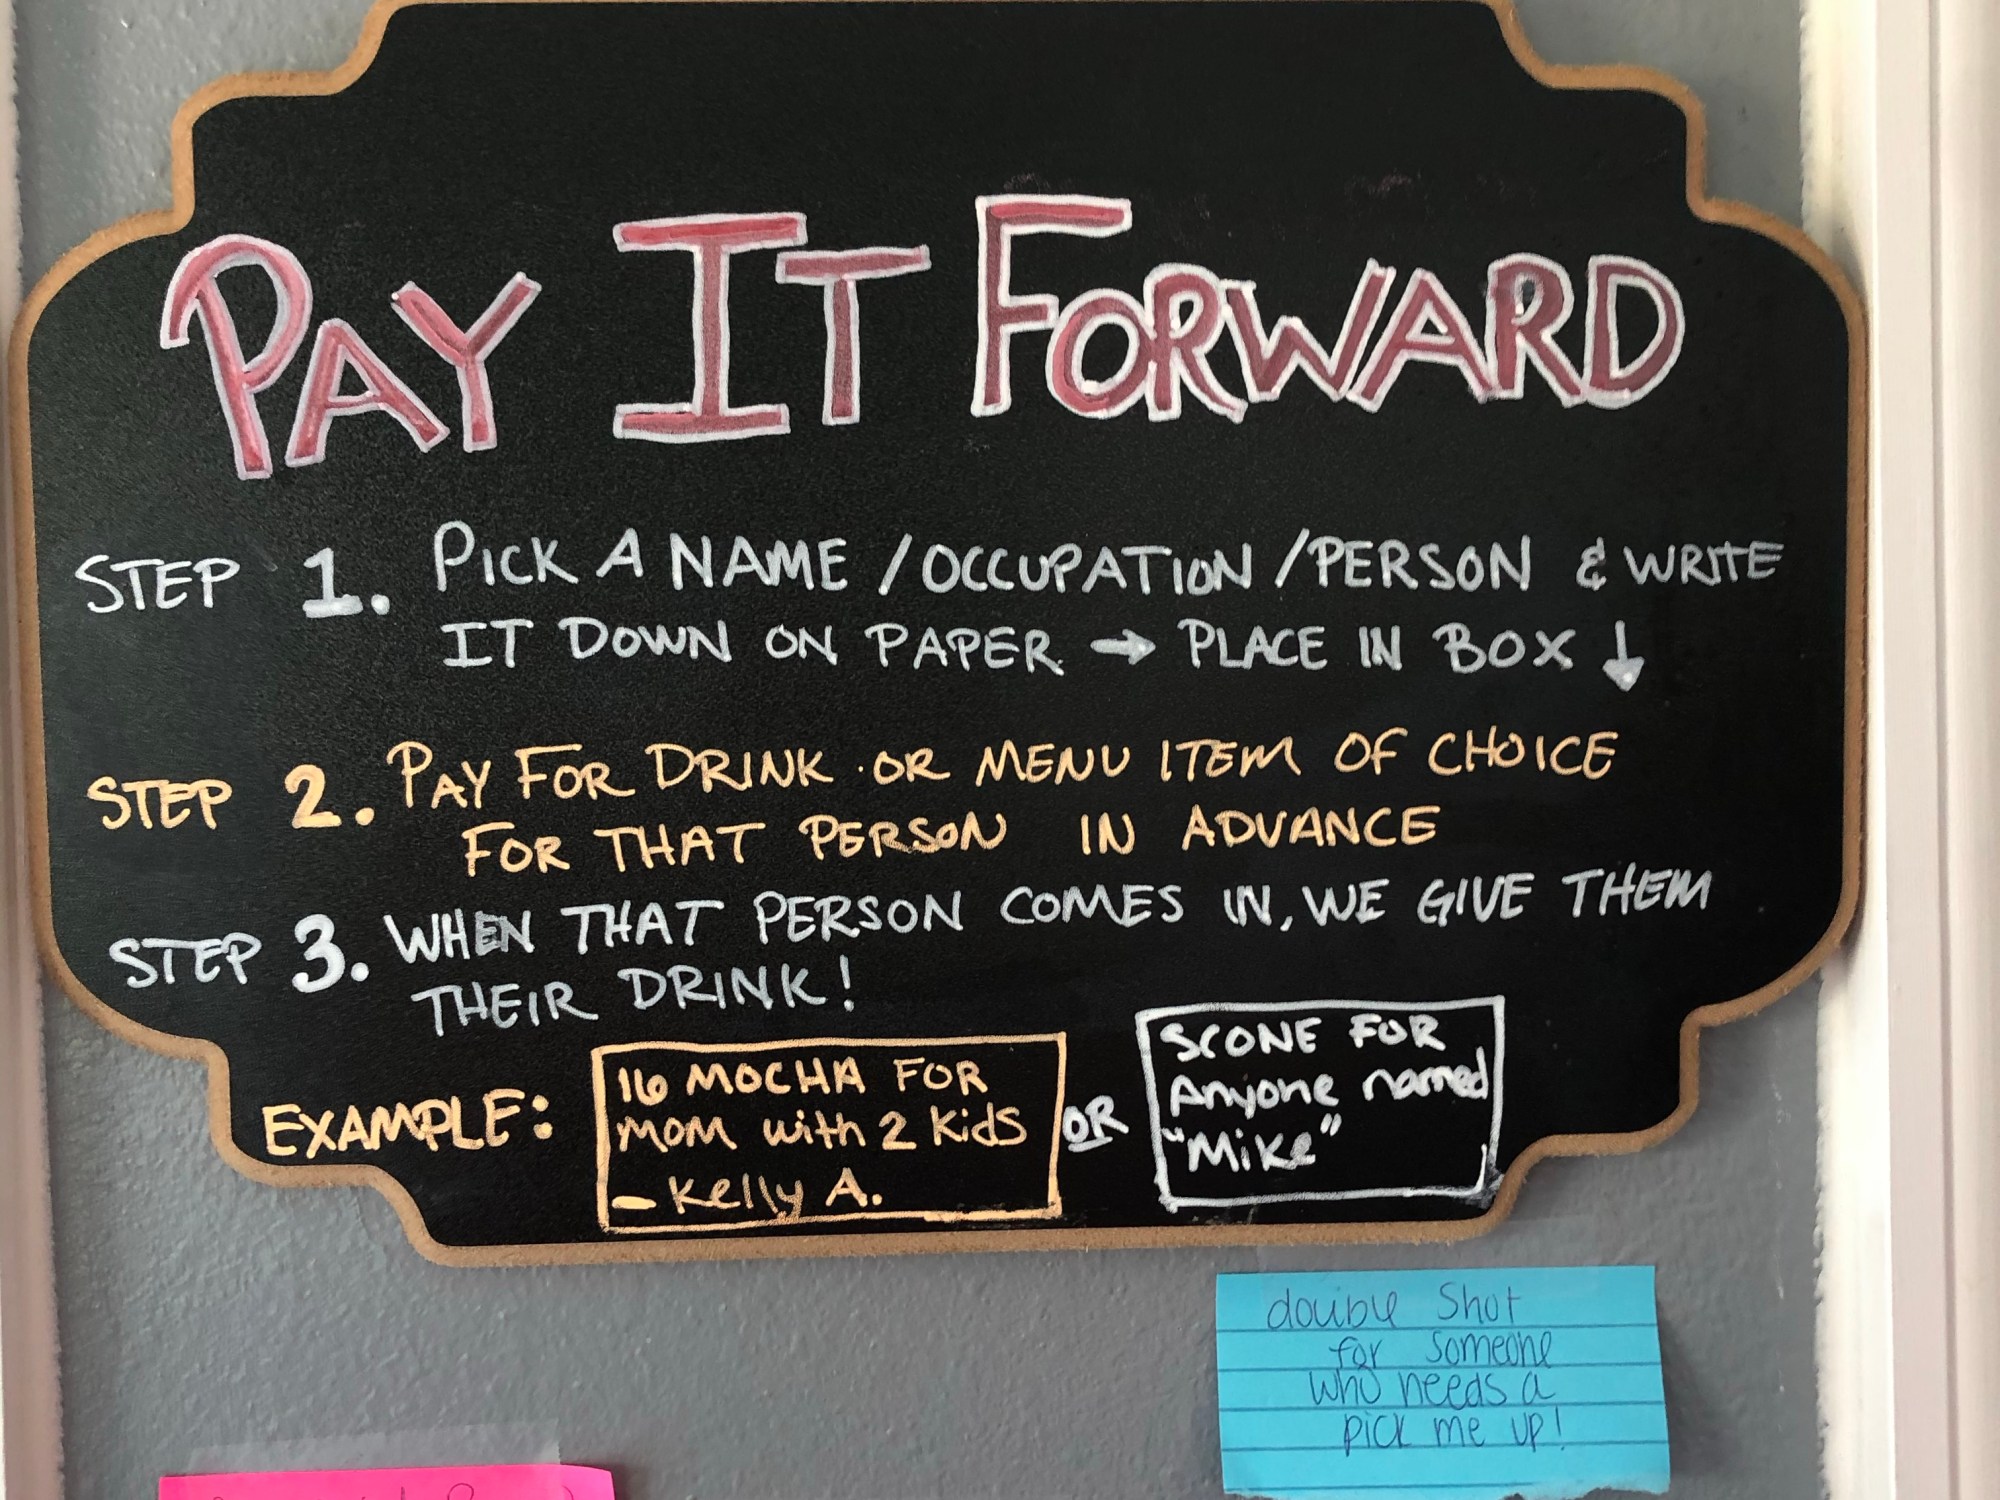 PAY IT FORWARD
STEP 1. PICK A NAME / OCCUPATION / PERSON & WRITE
IT DOWN ON PAPER → PLACE IN BOX ↓
STEP 2. PAY FOR DRINK OR MENU ITEM OF CHOICE
FOR THAT PERSON IN ADVANCE
STEP 3. WHEN THAT PERSON COMES IN, WE GIVE THEM
THEIR DRINK!
EXAMPLE:
16 MOCHA FOR
MOM with 2 Kids
- Kelly A.
OR
SCONE FOR
Anyone named
"Mike"
double Shot
for Someone
who needs a
pick me up!